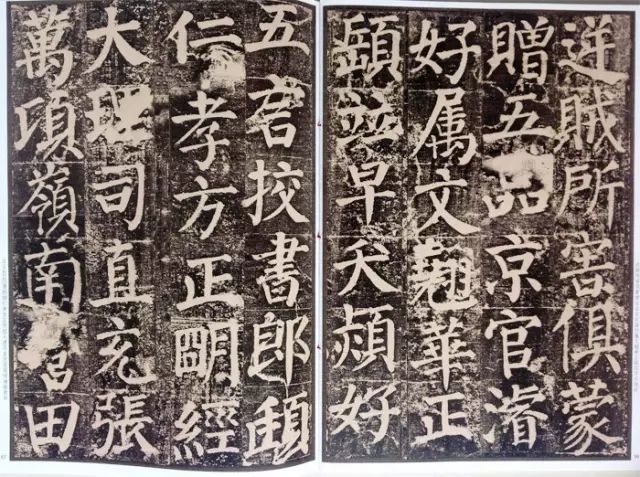 逆賊所害俱蒙
贈五品京官濬
好属文翹華正
並早夭熲好
五言挍書郎頲
仁孝方正明經
大理司直充張
萬頃嶺南營田